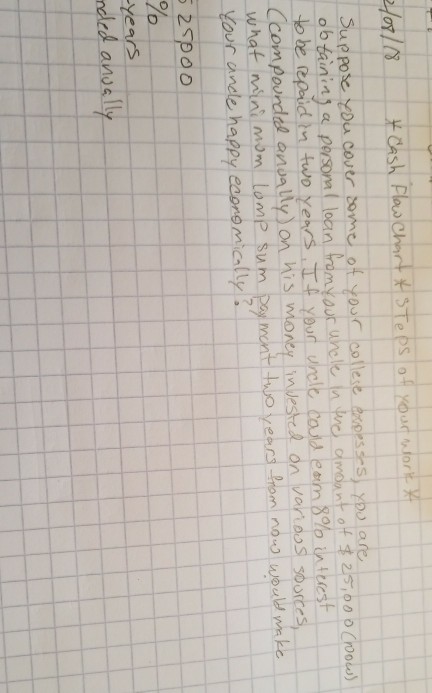 2/09/18 * Cash Flow Chart * STeps of your work *
Suppose you cover some of your college expesses, you are
obtaining a personal loan from your uncle in the amount of $25,000 (now)
to be repaid in two years. If your uncle could earn 8% interest
(compounded anually) on his money invested on various sources,
what minimum lump sum payment two years from now would make
your uncle happy economically?
25000
%
years
nded anually